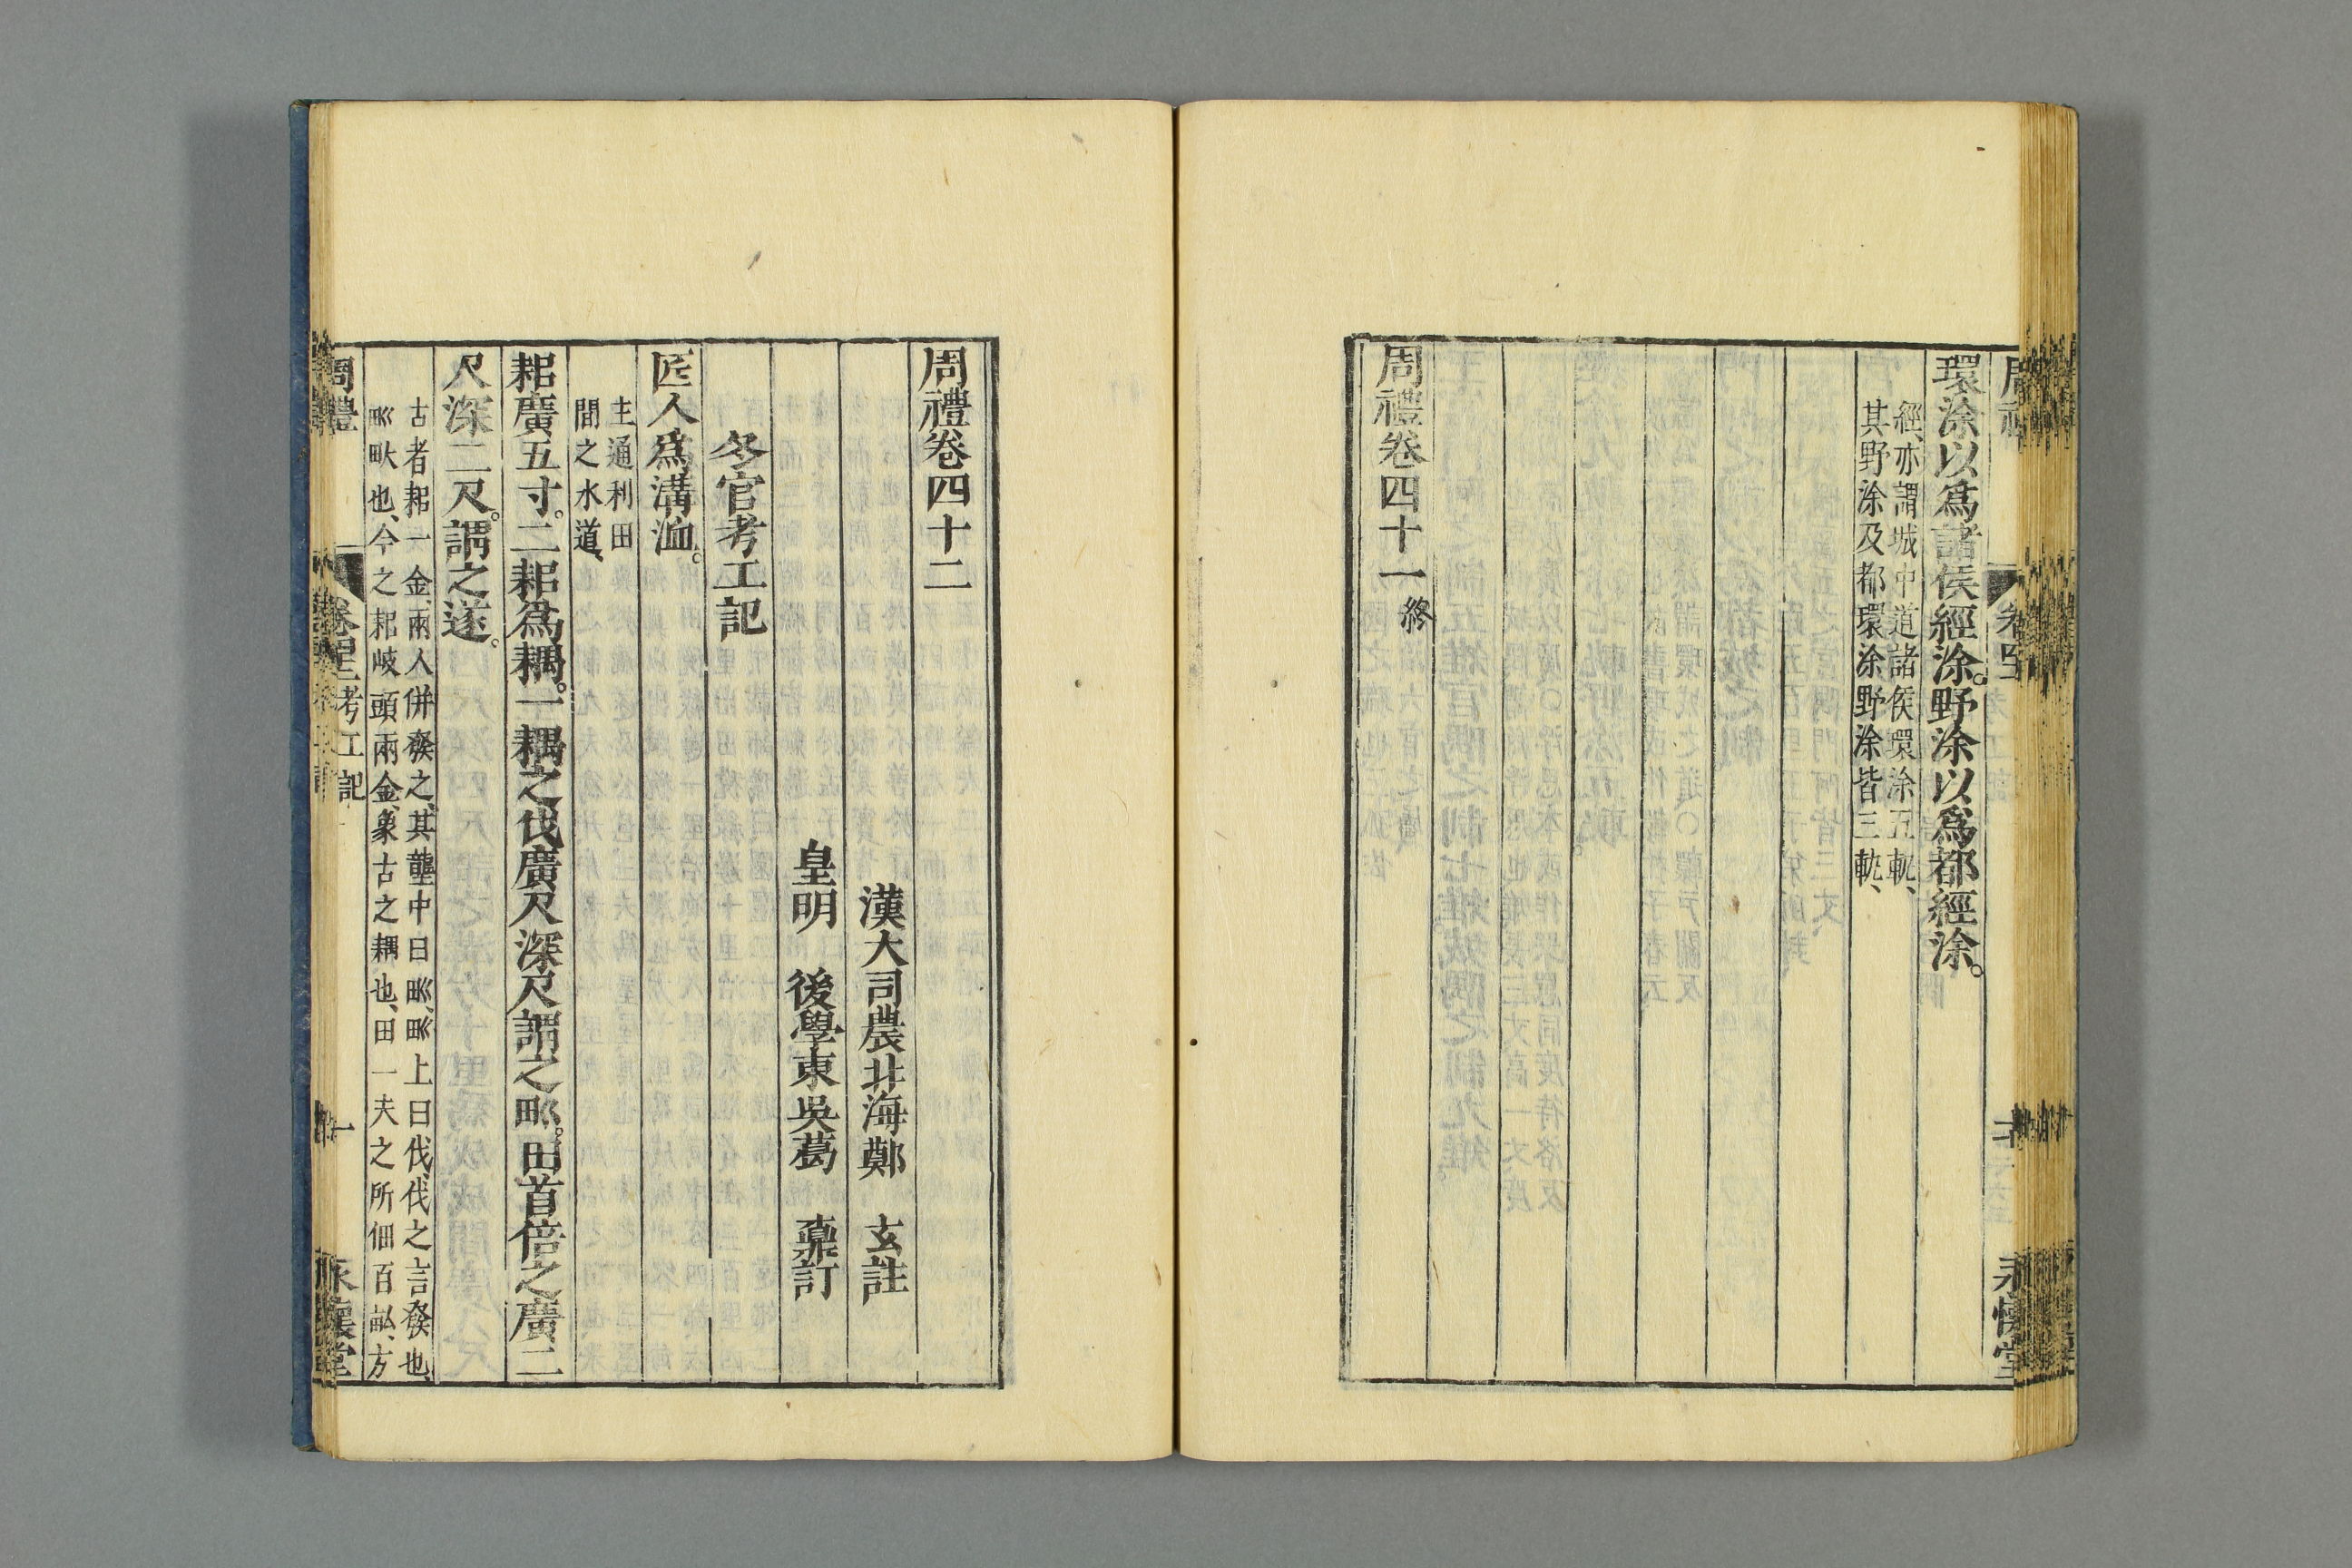 環涂以爲諸侯經涂。野涂以爲都經涂。
經、亦謂城中道諸侯環涂五軌、
其野涂及都環涂野涂皆三軌、
周禮卷四十一終
永懷堂
周禮卷四十二
漢大司農北海鄭 玄註
皇明 後學東吳葛 鼒訂
冬官考工記
匠人爲溝洫。
主通利田
間之水道、
耜廣五寸。二耜爲耦。一耦之伐廣尺深尺謂之𤰕。田首倍之廣二
尺深二尺。謂之遂。
古者耜一金、兩人併發之、其壟中曰𤰕、𤰕上曰伐、伐之言發也、
𤰕畎也、今之耜岐頭兩金、象古之耦也、田一夫之所佃百畝、方
周禮
考工記
一
永懷堂